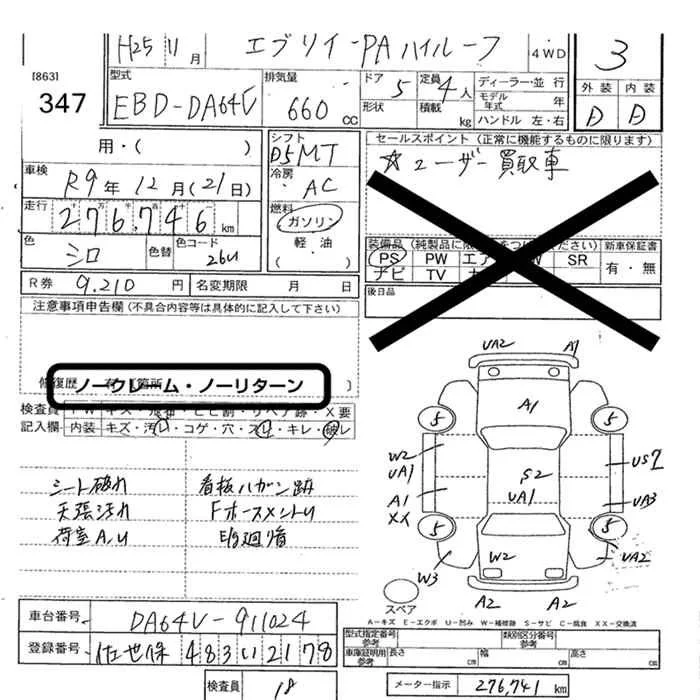 H25 11月 エブリイ-PAハイルーフ 4WD 3
[863]
347
型式 EBD-DA64V
排気量 660 cc
ドア 5 定員 4人
形状 積載 kg
ディーラー・並行
モデル年式 年
ハンドル 左・右
外装 内装
D D
用・( )
シフト D5MT
セールスポイント(正常に機能するものに限ります)
☆ユーザー買取車
車検 R9年12月(21日)
冷房 AC
走行 276,746 km
燃料 ガソリン
軽油
色 シロ 色替 色コード 26U
装備品(純製品に限
ください) 新車保証書
PS PW エア SR 有・無
ナビ TV
R券 9,210 円 名変期限 月 日
後日品
注意事項申告欄(不具合内容等は具体的に記入して下さい)
修復歴
ノークレーム・ノーリターン
検査員 X要
記入欄 内装 キズ・汚レ・コゲ・穴・スレ・キレ・破レ
シート破れ 看板ハガシ跡
天張汚れ FホースメントU
荷室A,U E/g廻り音
UA2 A1
A1
5 5
W2
UA1
S2
US2
A1
UA1
UA3
XX
5 5
W2
UA2
W3
スペア
A2 A2
A-キズ E-エクボ U-凹み W-補修跡 S-サビ C-腐食 XX-交換済
車台番号 DA64V-911024
型式指定番号 参考 類別区分番号 参考
登録番号 佐世保 483 い 2178
車庫証明用 参考 長さ cm 幅 cm 高さ cm
検査員 18
メーター指示 276,741 km